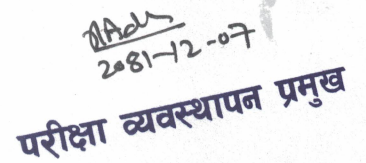 2081-12-07
परीक्षा व्यवस्थापन प्रमुख